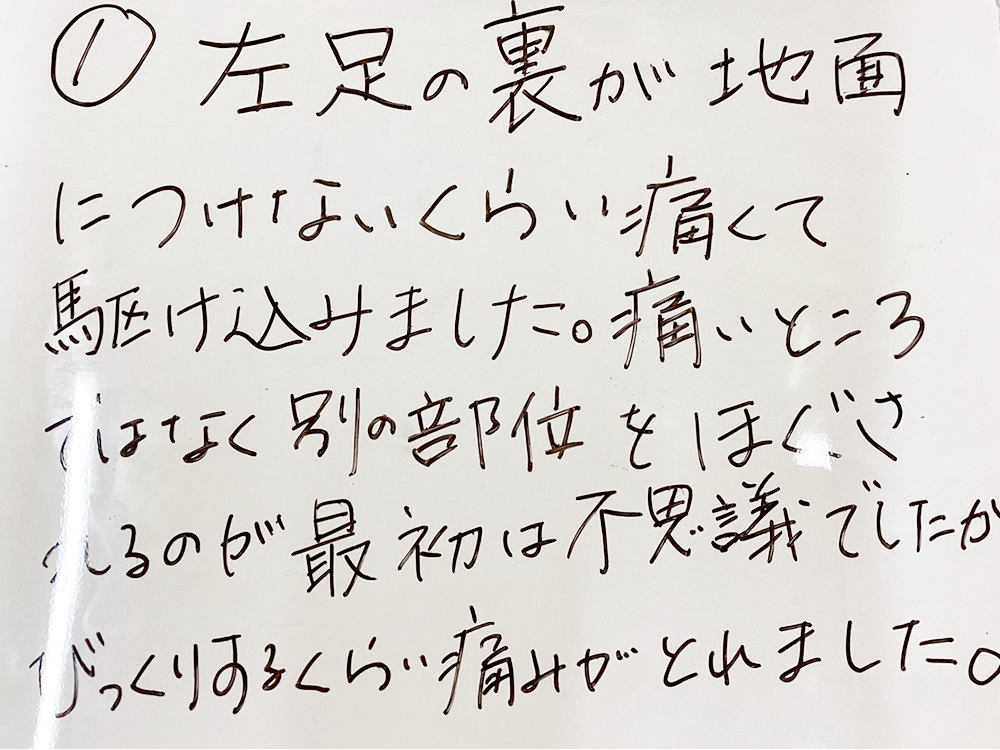 ① 左足の裏が地面
につけないくらい痛くて
駆け込みました。痛いところ
ではなく別の部位をほぐさ
れるのが最初は不思議でしたが
びっくりするくらい痛みがとれました。